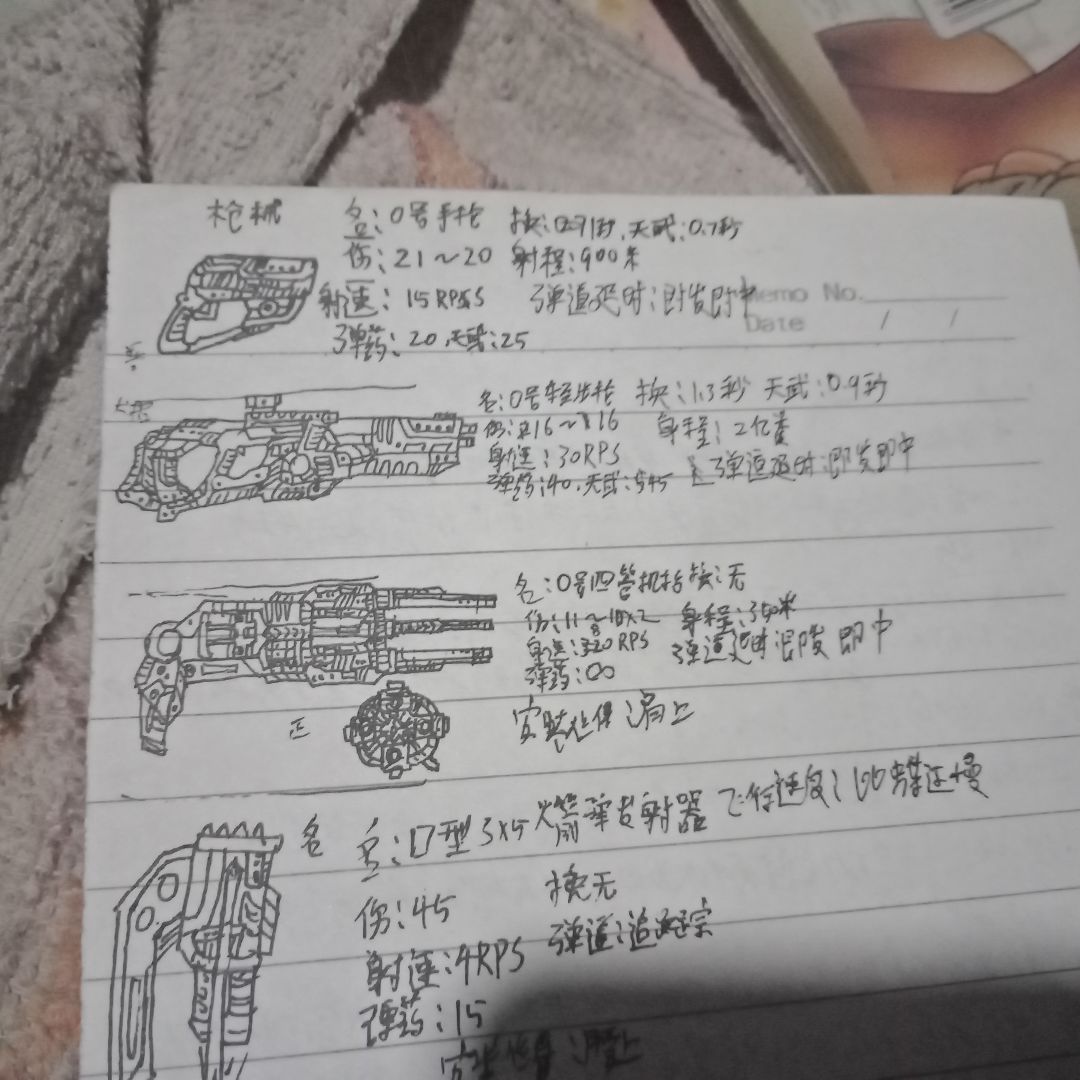 枪械
名:0号手枪 换:0.71秒,天武:0.7秒
伤:21~20 射程:900米
射速:15RPS 弹道延时:即发即中
Memo No.
Date / /
弹药:20,天武:25
名:0号轻步枪 换:1.3秒 天武:0.9秒
伤:16~16 射程:2亿
射速:30RPS 弹道延时:即发即中
弹药:40,天武:45
名:0号四管机枪 换:无
伤:11~ x2 射程:350米
射速: 20RPS 弹道延时:即发即中
弹药:∞
正
安装位置:肩上
名
名: 型3x5火箭弹发射器 飞行速度:100 连慢
伤:45 换无
射速:4RPS 弹道:追踪
弹药:15